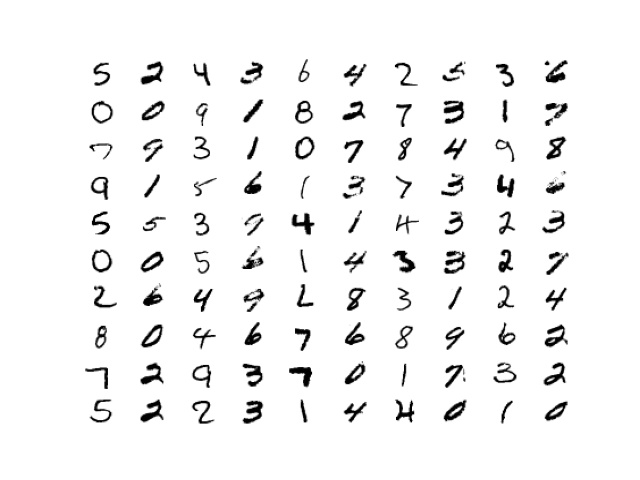 5 2 4 3 6 4 2 5 3 6
0 0 9 1 8 2 7 3 1 7
7 9 3 1 0 7 8 4 9 8
9 1 5 6 1 3 7 3 4 6
5 5 3 9 4 1 4 3 2 3
0 0 5 6 1 4 3 3 2 7
2 6 4 9 2 8 3 1 2 4
8 0 4 6 7 6 8 9 6 2
7 2 9 3 7 0 1 7 3 2
5 2 2 3 1 4 4 0 1 0